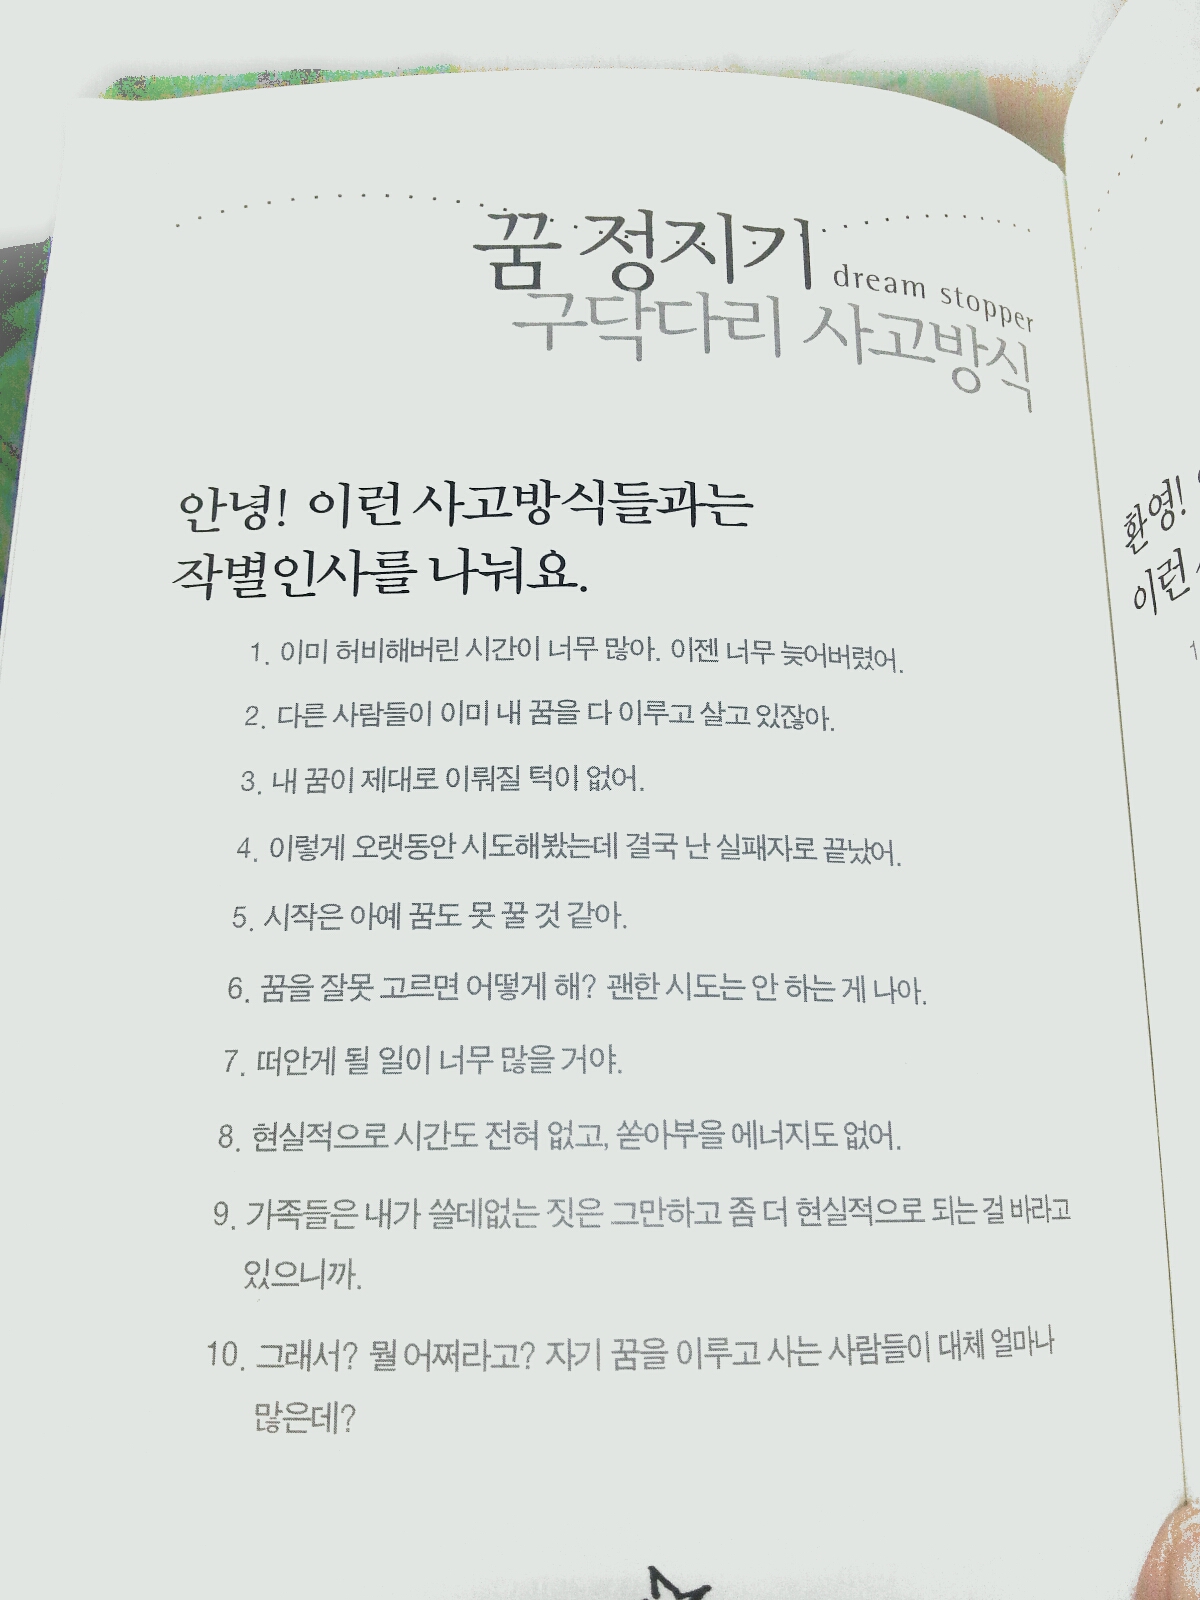 꿈 정지기 dream stopper
구닥다리 사고방식
안녕! 이런 사고방식들과는
작별인사를 나눠요.
1. 이미 허비해버린 시간이 너무 많아. 이젠 너무 늦어버렸어.
2. 다른 사람들이 이미 내 꿈을 다 이루고 살고 있잖아.
3. 내 꿈이 제대로 이뤄질 턱이 없어.
4. 이렇게 오랫동안 시도해봤는데 결국 난 실패자로 끝났어.
5. 시작은 아예 꿈도 못 꿀 것 같아.
6. 꿈을 잘못 고르면 어떻게 해? 괜한 시도는 안 하는 게 나아.
7. 떠안게 될 일이 너무 많을 거야.
8. 현실적으로 시간도 전혀 없고, 쏟아부을 에너지도 없어.
9. 가족들은 내가 쓸데없는 짓은 그만하고 좀 더 현실적으로 되는 걸 바라고
있으니까.
10. 그래서? 뭘 어쩌라고? 자기 꿈을 이루고 사는 사람들이 대체 얼마나
많은데?
환영!
이런
1